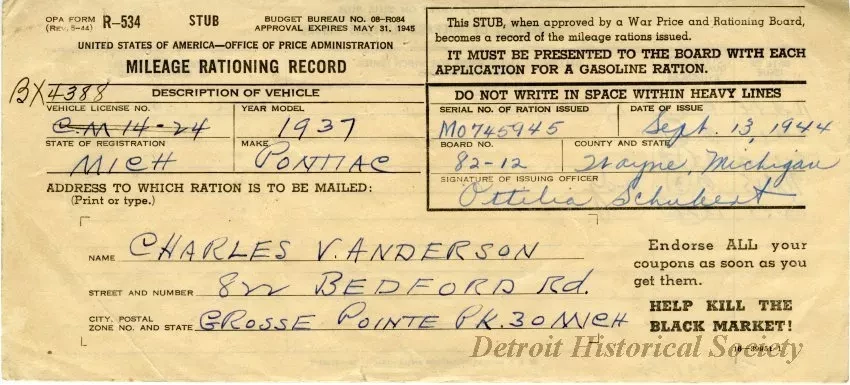 OPA FORM R-534 STUB BUDGET BUREAU NO. 08-R084
(Rev. 5-44) APPROVAL EXPIRES MAY 31, 1945
UNITED STATES OF AMERICA—OFFICE OF PRICE ADMINISTRATION
MILEAGE RATIONING RECORD
This STUB, when approved by a War Price and Rationing Board,
becomes a record of the mileage rations issued.
IT MUST BE PRESENTED TO THE BOARD WITH EACH
APPLICATION FOR A GASOLINE RATION.
BX4388
DESCRIPTION OF VEHICLE
VEHICLE LICENSE NO. YEAR MODEL
C.M 14-24 1937
STATE OF REGISTRATION MAKE
MICH PONTIAC
DO NOT WRITE IN SPACE WITHIN HEAVY LINES
SERIAL NO. OF RATION ISSUED DATE OF ISSUE
M0745945 Sept. 13, 1944
BOARD NO. COUNTY AND STATE
82-12 Wayne, Michigan
SIGNATURE OF ISSUING OFFICER
Ottilia Schubert
ADDRESS TO WHICH RATION IS TO BE MAILED:
(Print or type.)
NAME CHARLES V. ANDERSON
STREET AND NUMBER 822 BEDFORD Rd.
CITY, POSTAL
ZONE NO. AND STATE GROSSE POINTE PK. 30 MICH
Endorse ALL your
coupons as soon as you
get them.
HELP KILL THE
BLACK MARKET!
Detroit Historical Society